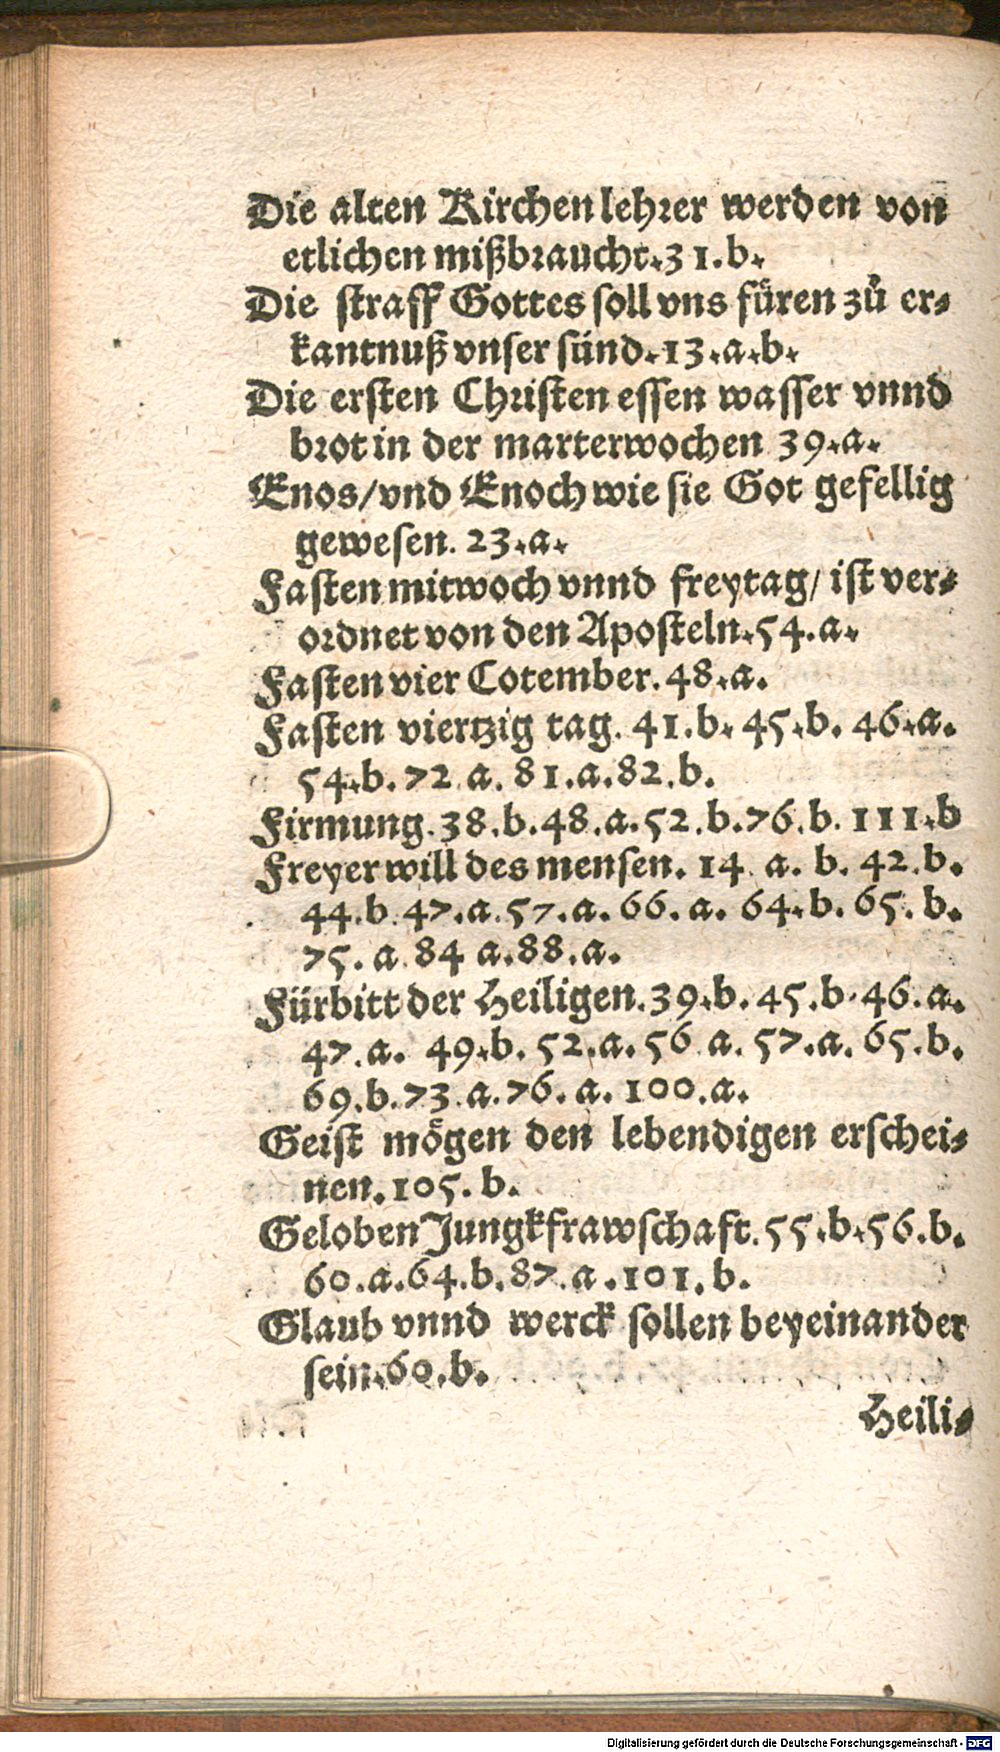 Die alten Kirchen lehrer werden von
etlichen mißbraucht. 31. b.
Die straff Gottes soll vns fuͤren zuͦ er-
kantnuß vnser sünd. 13. a. b.
Die ersten Christen essen wasser vnnd
brot in der marterwochen 39. a.
Enos/ vnd Enoch wie sie Got gefellig
gewesen. 23. a.
Fasten mitwoch vnnd freytag/ ist ver-
ordnet von den Aposteln. 54. a.
Fasten vier Cotember. 48. a.
Fasten viertzig tag. 41. b. 45. b. 46. a.
54. b. 72 a. 81. a. 82. b.
Firmung. 38. b. 48. a. 52. b. 76. b. 111. b
Freyer will des mensen. 14 a. b. 42. b.
44. b. 47. a. 57. a. 66. a. 64. b. 65. b.
75. a. 84 a. 88. a.
Fürbitt der Heiligen. 39. b. 45. b. 46. a.
47. a. 49. b. 52. a. 56 a. 57. a. 65. b.
69. b. 73. a. 76. a. 100. a.
Geist moͤgen den lebendigen erschei-
nen. 105. b.
Geloben Jungkfrawschaft. 55. b. 56. b.
60. a. 64. b. 87. a. 101. b.
Glaub vnnd werck sollen beyeinander
sein. 60. b.
Heili-
Digitalisierung gefördert durch die Deutsche Forschungsgemeinschaft - DFG